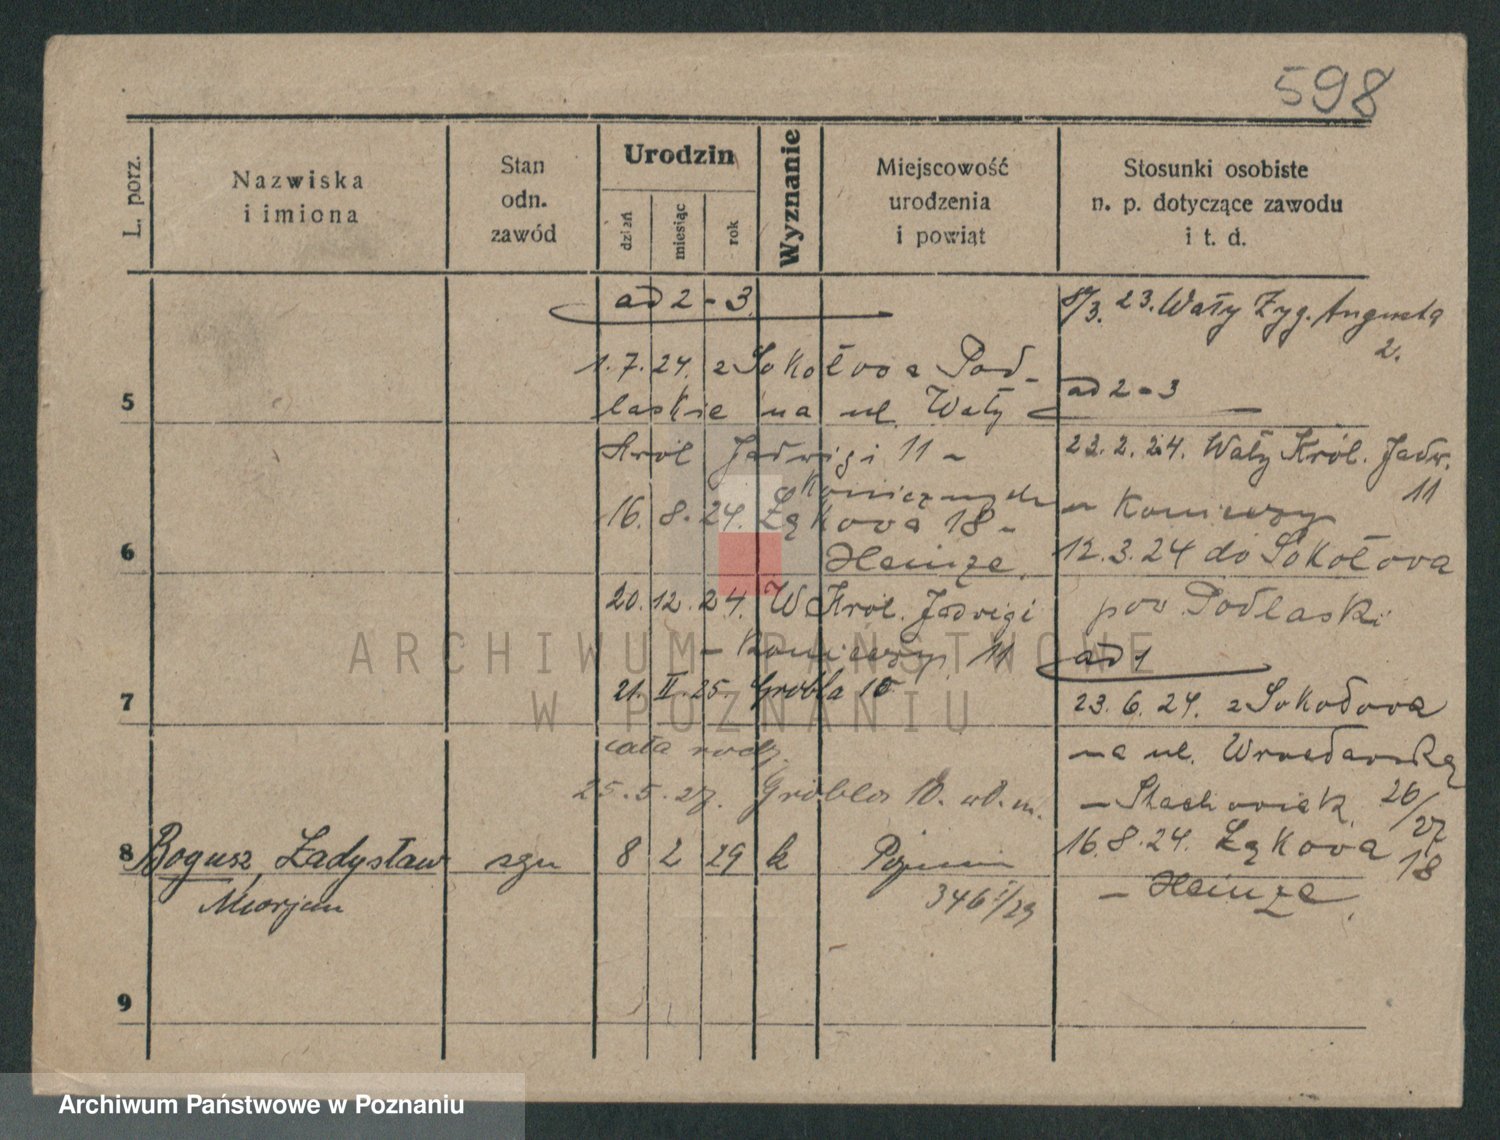 598
L. porz.
Nazwiska
i imiona
Stan
odn.
zawód
Urodzin
dzień
miesiąc
rok
Wyznanie
Miejscowość
urodzenia
i powiąt
Stosunki osobiste
n. p. dotyczące zawodu
i t. d.
ad 2 - 3
1. 7. 24. z Sokołowa Pod-
laskie na ul. Wały
Król Jadwigi 11 -
16. 8. 24. Łąkova 18 -
Heinze.
20. 12. 24. W Król. Jadwigi
11
21. II. 25. Grobla 15
cała rodz.
25. 5. 27. Grobla 10.
5
6
7
8 Bogusz, Ładysław
Marjan
8 2 29 k
346 /29
9
/3. 23. Wały Zyg. Augusta
2.
ad 2 - 3
23. 2. 24. Wały Król. Jadw.
11
12. 3. 24 do Sokołova
pow. Podlaski
ad 1
23. 6. 24. z Sokołova
na ul. Wrocławską
26/27
16. 8. 24. Łąkova
18
- Heinze.
ARCHIWUM PAŃSTWOWE
W POZNANIU
Archiwum Państwowe w Poznaniu